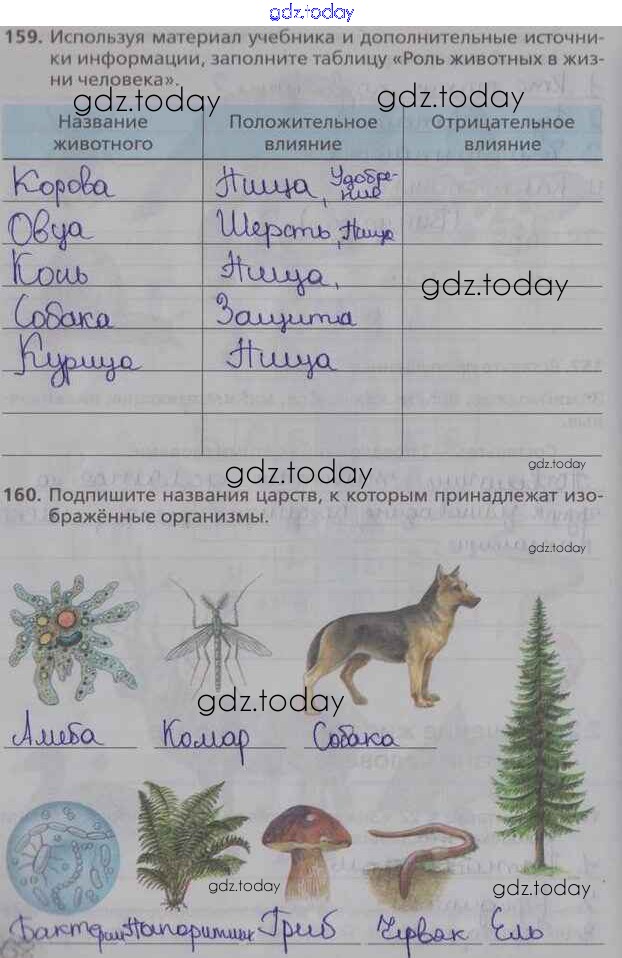 gdz.today
159. Используя материал учебника и дополнительные источни-
ки информации, заполните таблицу «Роль животных в жиз-
ни человека».
gdz.today
gdz.today
Название животного
Положительное влияние
Отрицательное влияние
Корова Пища, Удобре-
ние
Овца Шерсть, Пища
Конь Пища,
gdz.today
Собака Защита
Курица Пища
gdz.today
gdz.today
160. Подпишите названия царств, к которым принадлежат изо-
бражённые организмы.
gdz.today
gdz.today
Амеба Комар Собака
gdz.today
gdz.today
Бактерии Папоротник Гриб Червяк Ель